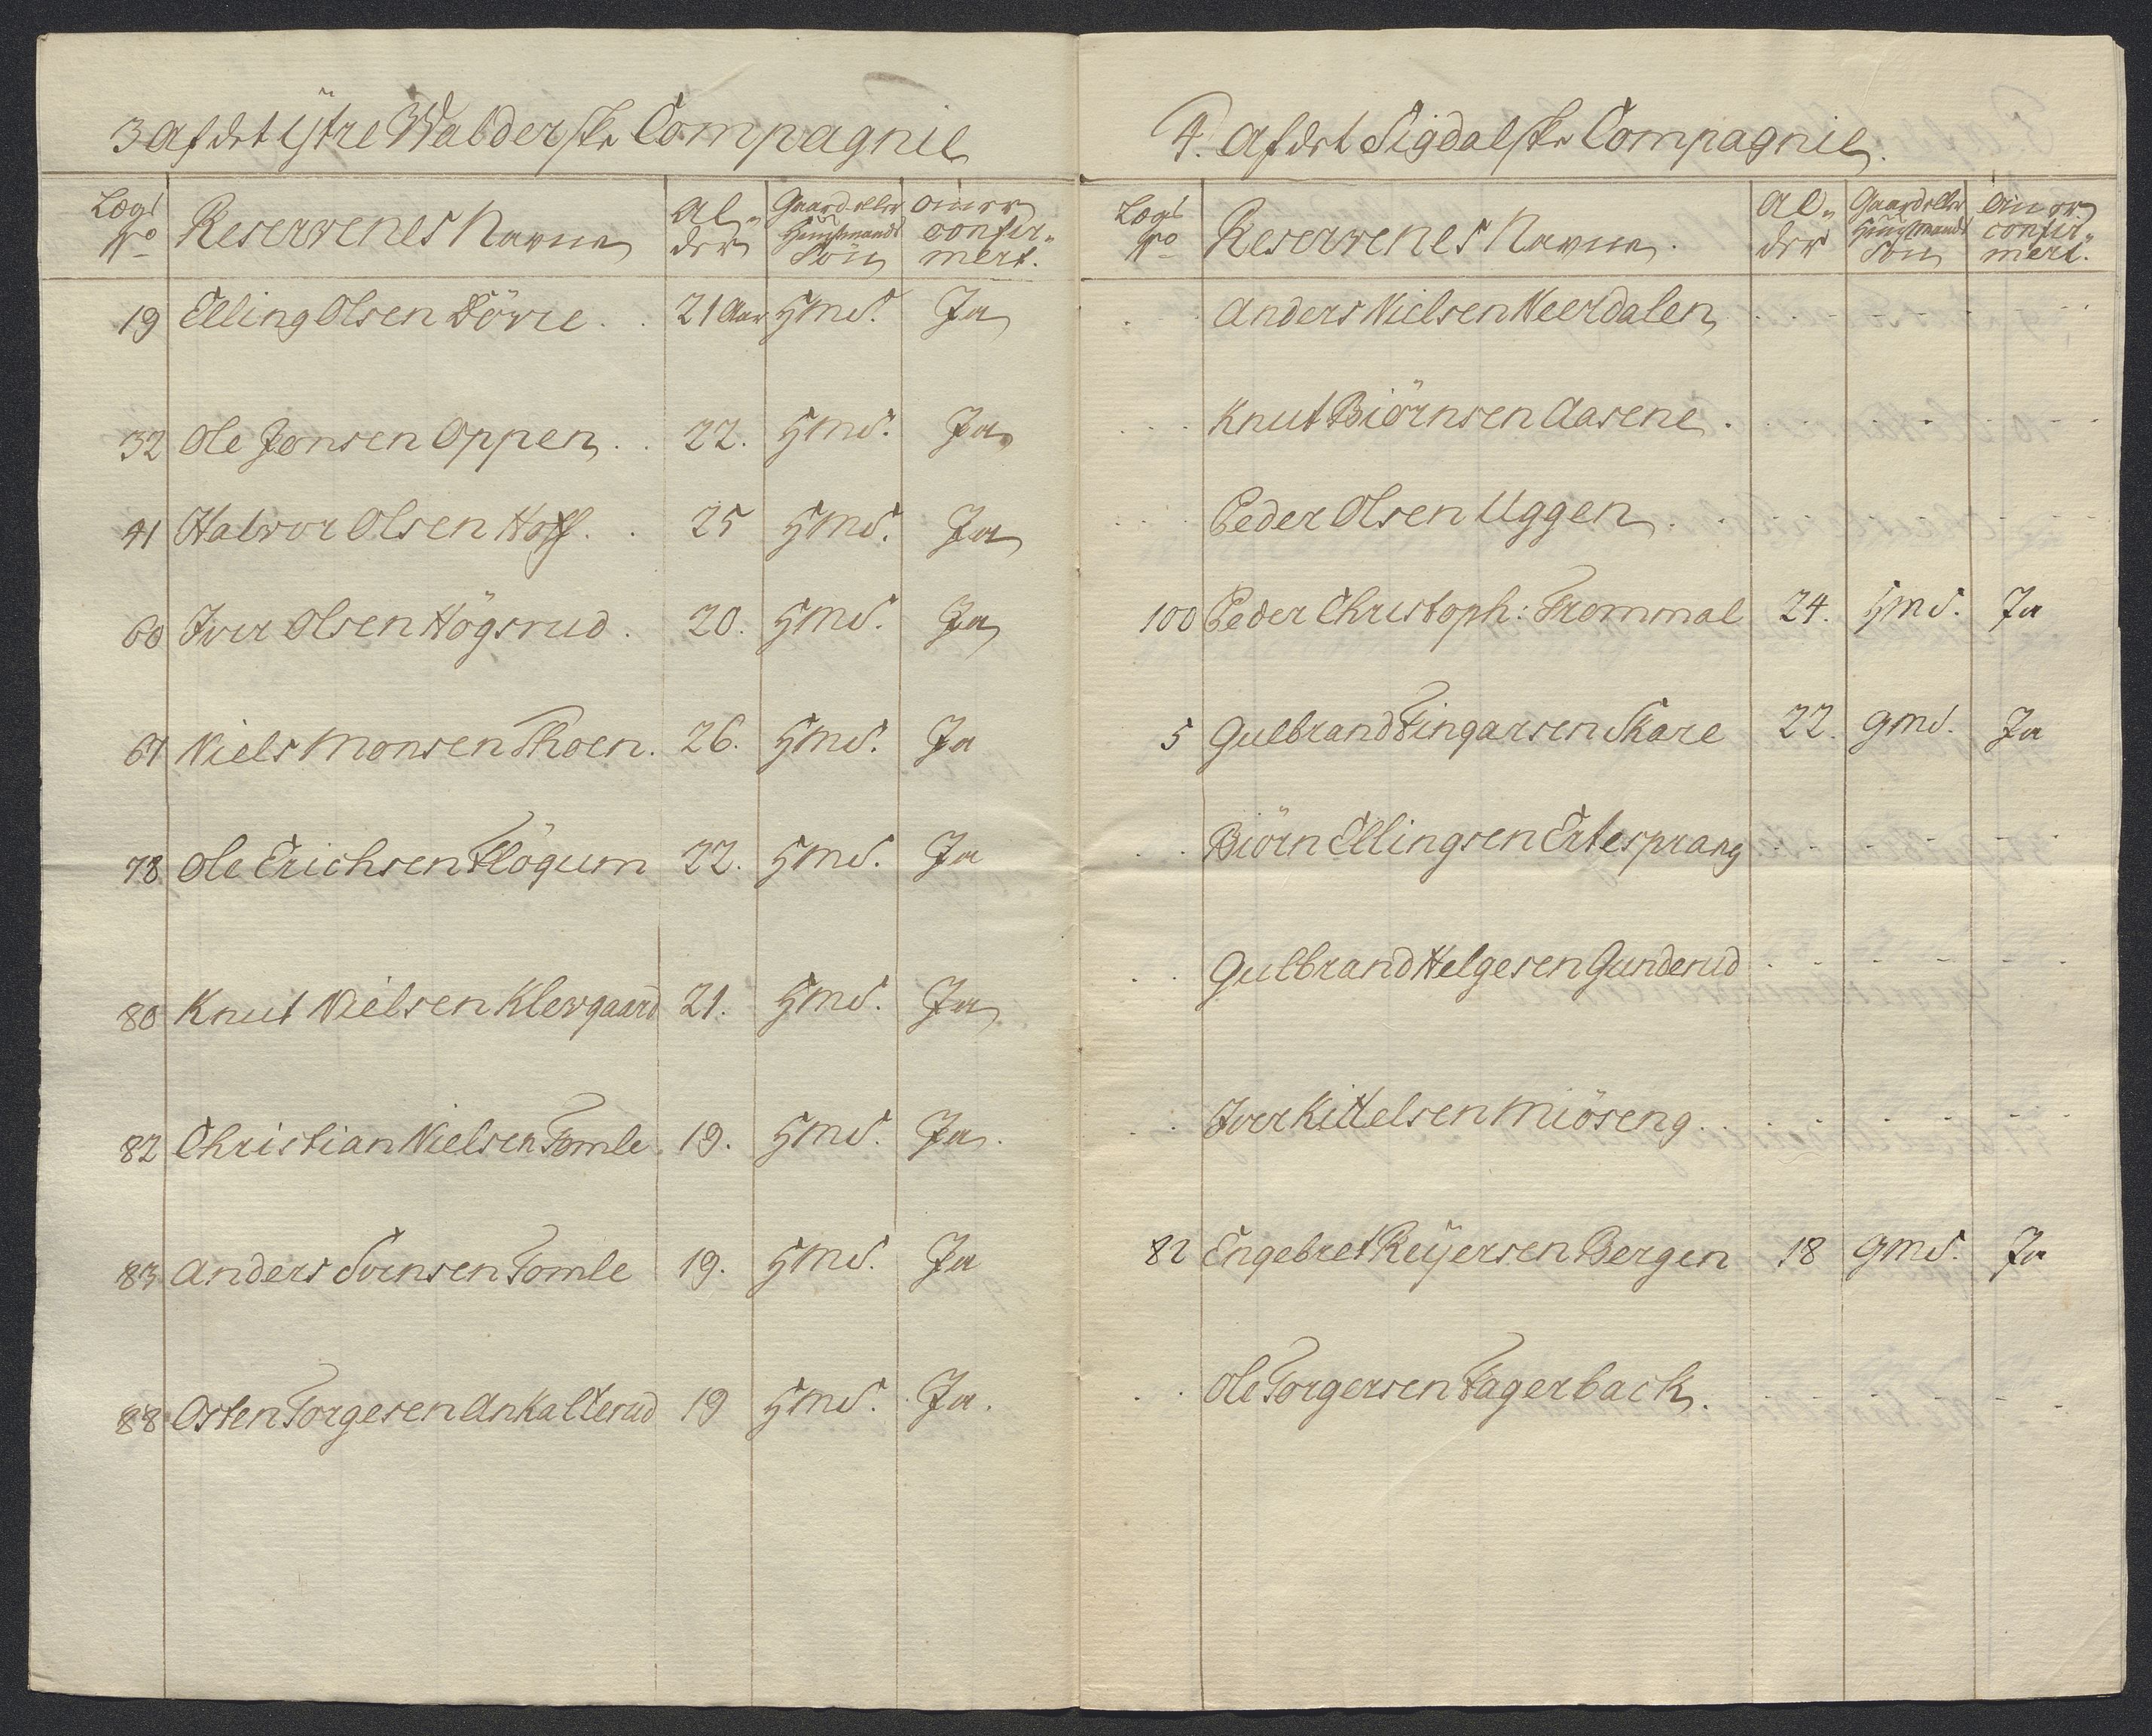 3 af det ÿtre Walderske Compagnie
Læg No | Reservenes Navne | Al- der | Gaard eller Huusmands Sön | Om er confir- mert.
19 | Elling Olsen Dövre . . | 21 Aar | HmS. | Ja
32 | Ole Jonsen Oppen . . | 22. | HmS. | Ja
41 | Halvor Olsen Hoff. . | 25 | HmS. | Ja
60 | Iver Olsen Högsrud . | 20. | HmS. | Ja
61 | Niels Monsen Thoen. | 26. | HmS. | Ja
78 | Ole Erichsen Flögum | 22. | HmS. | Ja
80 | Knut Nielsen Klevgaard | 21. | HmS. | Ja
82 | Christian Nielsen Tomle. | 19. | HmS. | Ja.
83 | Anders Svensen Tomle | 19. | HmS. | Ja
88 | Osten Torgesen Ankalterud | 19 | HmS. | Ja.
4. Af det Sigdalske Compagnie.
Læg No | Reservenes Navne. | Al- der | Gaard eller Huusmands Sön | Om er confir- mert.
Anders Nielsen Neerdalen
Knut Biörnsen Aasene.
Peder Olsen Uggen
100 | Peder Christoph: Frommal | 24. | HmS. | Ja
5 | Gulbrand Fingarsen Skare | 22. | GmS. | Ja
Biörn Ellingsen Ertesprang
Gulbrand Helgesen Gunderud
Iver Kittelsen Miöseng
82 | Engebret Reÿersen Bergen | 18 | GmS. | Ja
Ole Torgersen Fagerback.